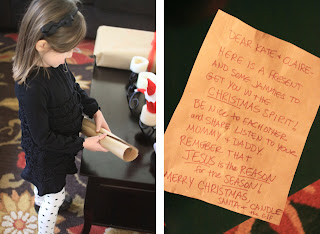 DEAR KATE + CLAIRE,
HERE IS A PRESENT
AND SOME JAMMIES TO
GET YOU IN THE
CHRISTMAS SPIRIT!
BE NICE TO EACH OTHER
AND SHARE. LISTEN TO YOUR
MOMMY + DADDY.
REMEMBER THAT
JESUS is the REASON
for the SEASON!
MERRY CHRISTMAS,
SANTA +
the elf